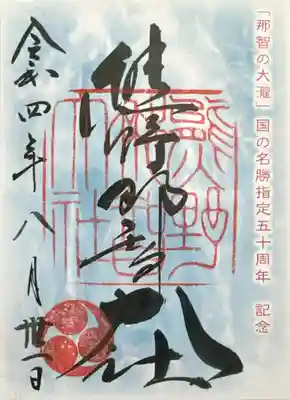 「那智の大瀧」国の名勝指定五十周年 記念
熊野那智大社
令和四年八月卅一日